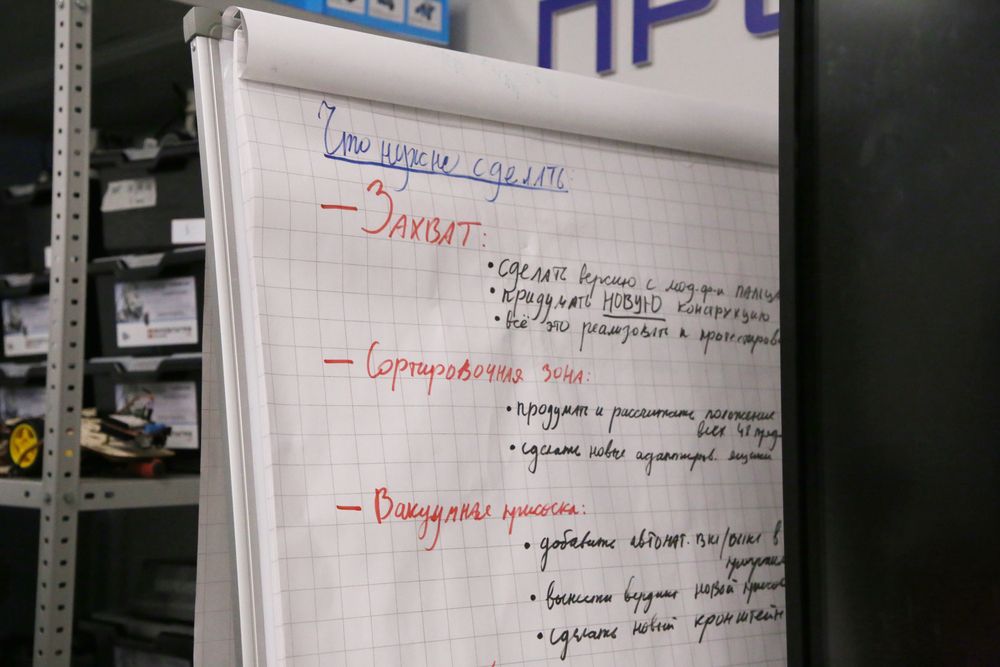 ПРО
Что нужно сделать:
— Захват:
• сделать версию с мод.ф-и пальца
• придумать НОВУЮ конструкцию
• всё это реализовать и протестирова
— Сортировочная зона:
• продумать и рассчитать положение
всех 48 пред
• сделать новые адаптиров. ящики
— Вакуумная присоска:
• добавить автомат. вкл/выкл в
• вынести вердикт новой присос
• сделать новый кронштейн